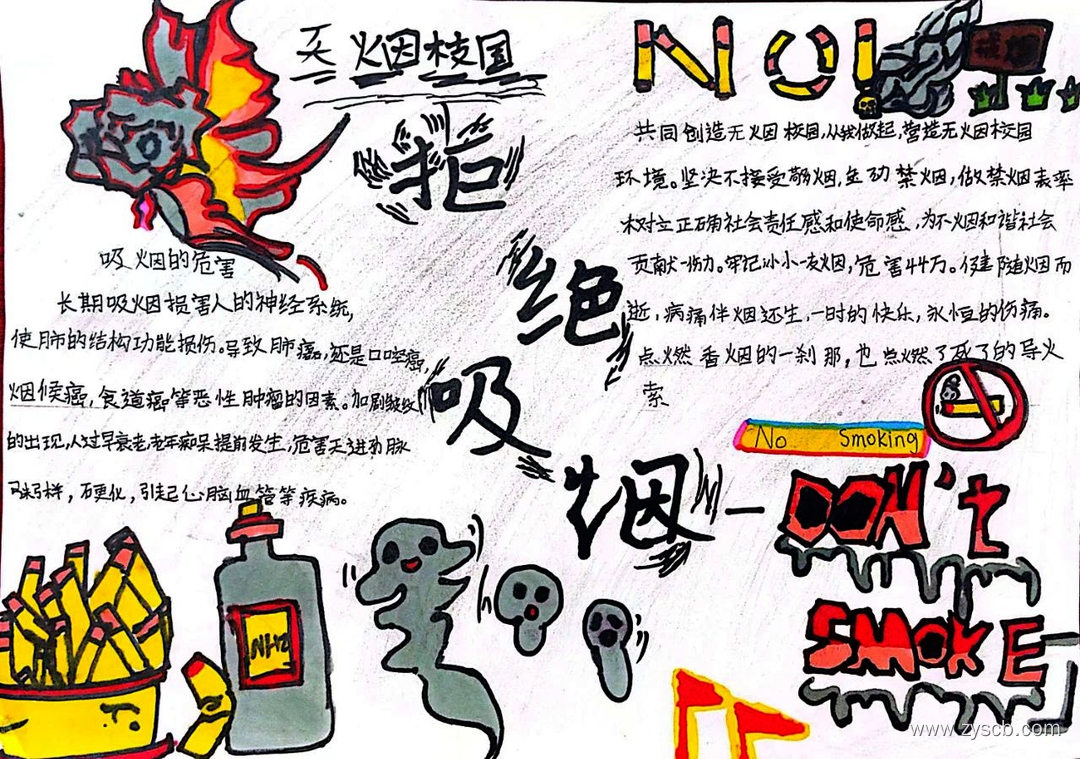 灭烟校园
拒
绝
吸
烟
吸烟的危害
长期吸烟损害人的神经系统,
使肺的结构功能损伤。导致肺癌,还是口腔癌,
烟候癌,食道癌等恶性肿瘤的因素。加剧皱纹
的出现,人过早衰老,老年痴呆提前发生,危害
硬化,引起心脑血管等疾病。
NO!
共同创造无烟校园,从我做起,营造无烟校园
环境。坚决不接受敬烟,主动禁烟,做禁烟表率
树立正确社会责任感和使命感,为不烟和谐社会
贡献一份力。牢记小小一支烟,危害千万。健随烟而
逝,病痛伴烟还生,一时的快乐,永恒的伤痛。
点燃香烟的一刹那,也点燃了死了的导火
索
No Smoking
DON't
SMOKE
www.zyscb.com